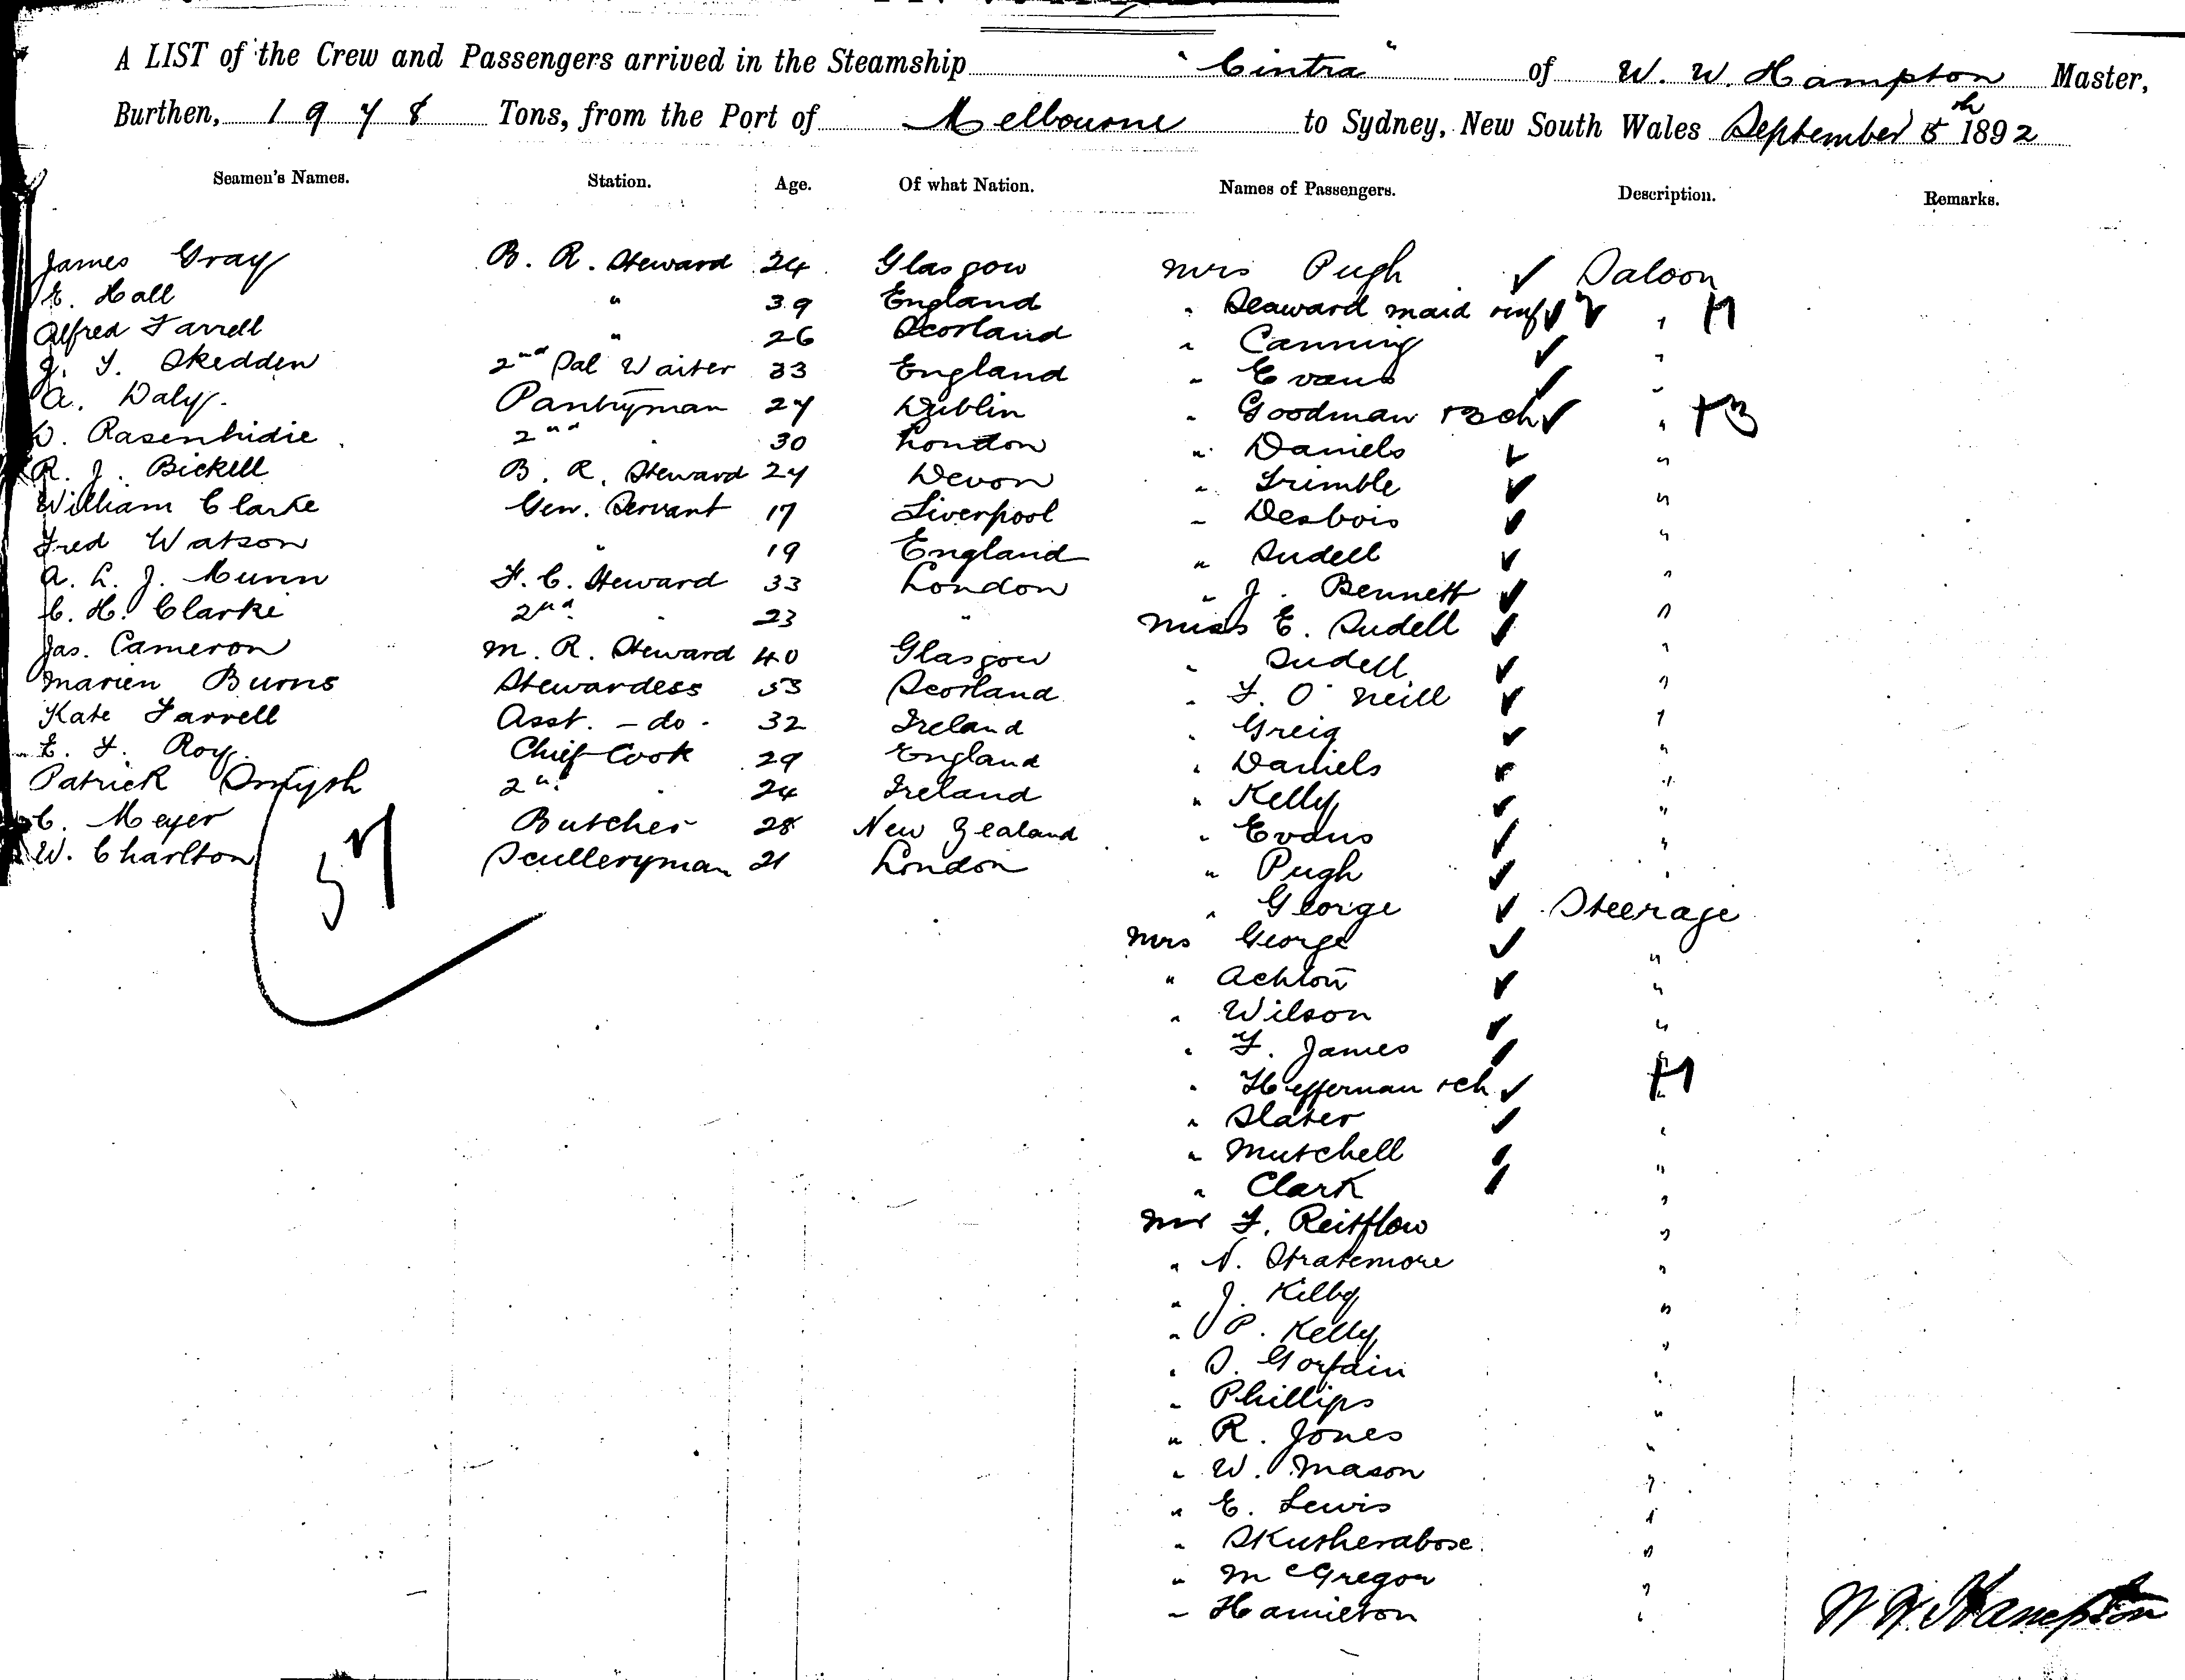 A LIST of the Crew and Passengers arrived in the Steamship "Cintra" of W. W. Hampton Master,
Burthen, 1978 Tons, from the Port of Melbourne to Sydney, New South Wales September 5th 1892
Seamen's Names. Station. Age. Of what Nation. Names of Passengers. Description. Remarks.
James Gray B. R. Steward 24 Glasgow Mrs Pugh ✓ Saloon
E. Hall " 39 England " Seaward maid ✓ " +1
Alfred Farrell " 26 Scotland " Canning ✓ "
J. T. Skedden 2nd Sal Waiter 33 England " Evans ✓ "
A. Daly. Pantryman 27 Dublin " Goodman + 3 ch ✓ " +3
2nd " 30 London " Daniels ✓ "
R. J. Bickell B. R. Steward 27 Devon " Trimble ✓ "
William Clarke Gen. Servant 17 Liverpool " Desbois ✓ "
Fred Watson " 19 England " Sudell ✓ "
A. L. J. Munn F. C. Steward 33 London " J. Bennett ✓ "
C. H. Clarke 2nd " 23 " Miss E. Sudell ✓ "
Jas. Cameron M. R. Steward 40 Glasgow " Sudell ✓ "
Marien Burns Stewardess 53 Scotland " F. O'Neill ✓ "
Kate Farrell Asst. - do - 32 Ireland " Greig ✓ "
E. F. Roy. Chief Cook 29 England " Daniels ✓ "
Patrick Smyth 2nd " 24 Ireland " Kelly ✓ "
C. Meyer Butcher 28 New Zealand " Evans ✓ "
W. Charlton Sculleryman 21 London " Pugh ✓ "
57
" George ✓ Steerage
Mrs George ✓ "
" Achton ✓ "
" Wilson ✓ "
" F. James ✓ "
" Heffernan + ch ✓ " +1
" Slater ✓ "
" Mutchell ✓ "
" Clark ✓ "
Mr F. Reitflow "
" N. Stratemore "
" J. Kilby "
" P. Kelly "
" S. Gorfain "
" Phillips "
" R. Jones "
" W. Mason "
" E. Lewis "
" Skutherabose "
" McGregor "
" Hamilton "
W W Hampton